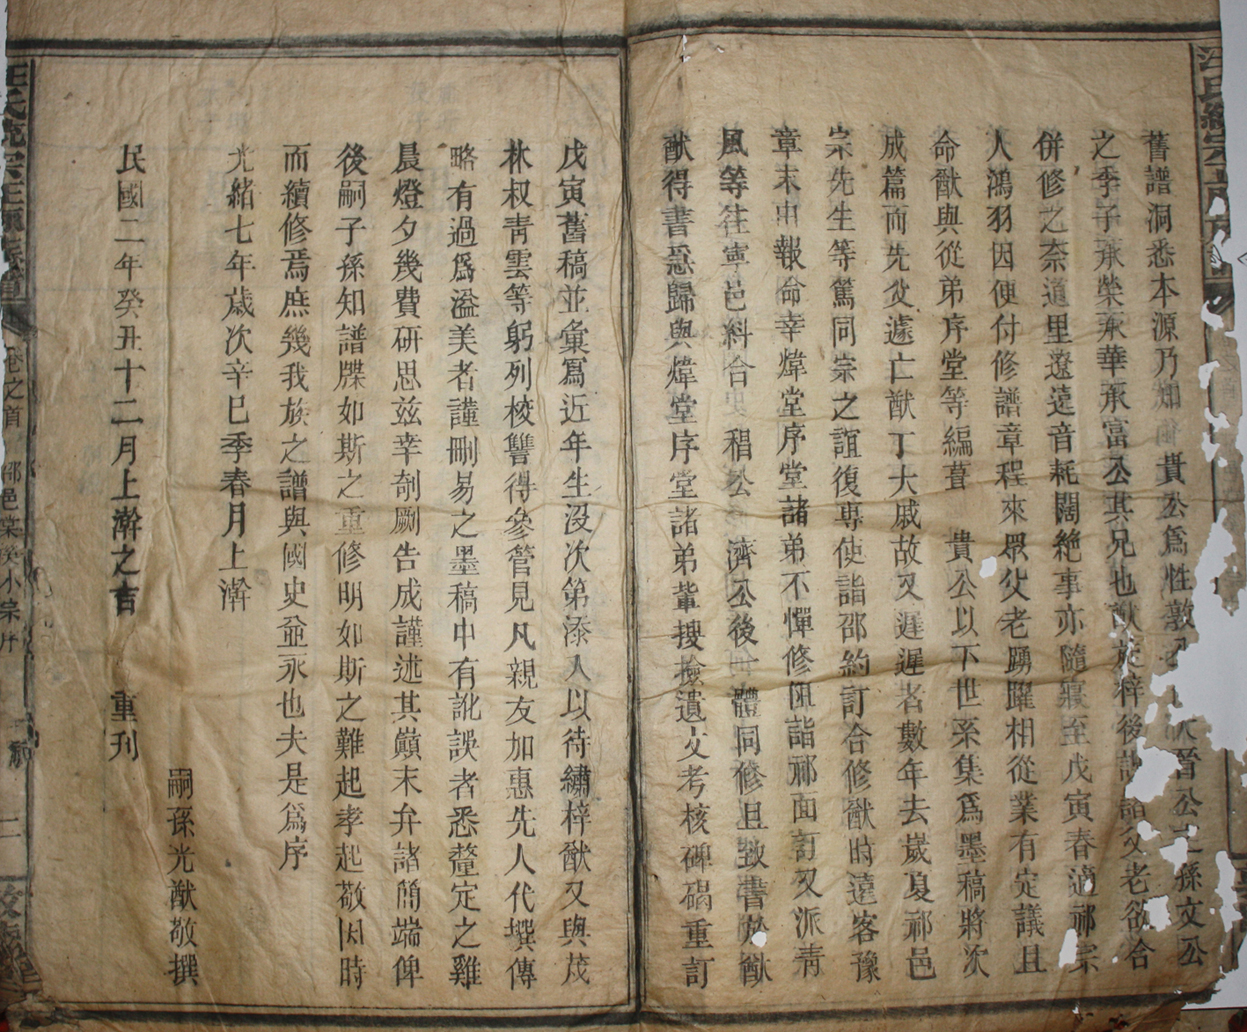 舊譜洞悉本源乃知 貴公爲性敦 晉公之孫文公
之季子承榮承華承富公其兄也猷族梓後訪諸父老欲合
併修之奈道里遼遠音耗闊絶事亦隨寢至戊寅春適祁宗
人鴻羽因便付修譜章程來眾父老踴躍相從業有定議且
命猷與從弟序堂等編葺 貴公以下世系集爲墨稿將次
成篇而先父遽亡猷丁大戚故又遲遲者數年去嵗夏祁邑
宗先生等篤同宗之誼復專使詣邵約訂合修猷時遠客豫
章末由報命幸煒堂序堂諸弟不憚修阻詣祁面訂又派靑
風等往寧邑糾合 稆公 濟公後 一體同修且致書於猷
猷得書急歸與煒堂序堂諸弟輩搜撿遺文考核碑碣重訂
戊寅舊稿並彙寫近年生沒次第添人以待繡梓猷又與茂
林叔靑雲等躬列校讐得參管見凡親友加惠先人代撰傳
略有過爲溢美者謹刪易之墨稿中有訛誤者悉釐定之雞
晨燈夕幾費研思玆幸剞劂告成謹述其巔末弁諸簡端俾
後嗣子孫知譜牒如斯之重修明如斯之難起孝起敬因時
而續修焉庶幾我族之譜與國史並永也夫是爲序
光緒七年歲次辛巳季春月上澣
嗣孫光猷敬撰
民國二年癸丑十二月上澣之吉 重刋
卷之首